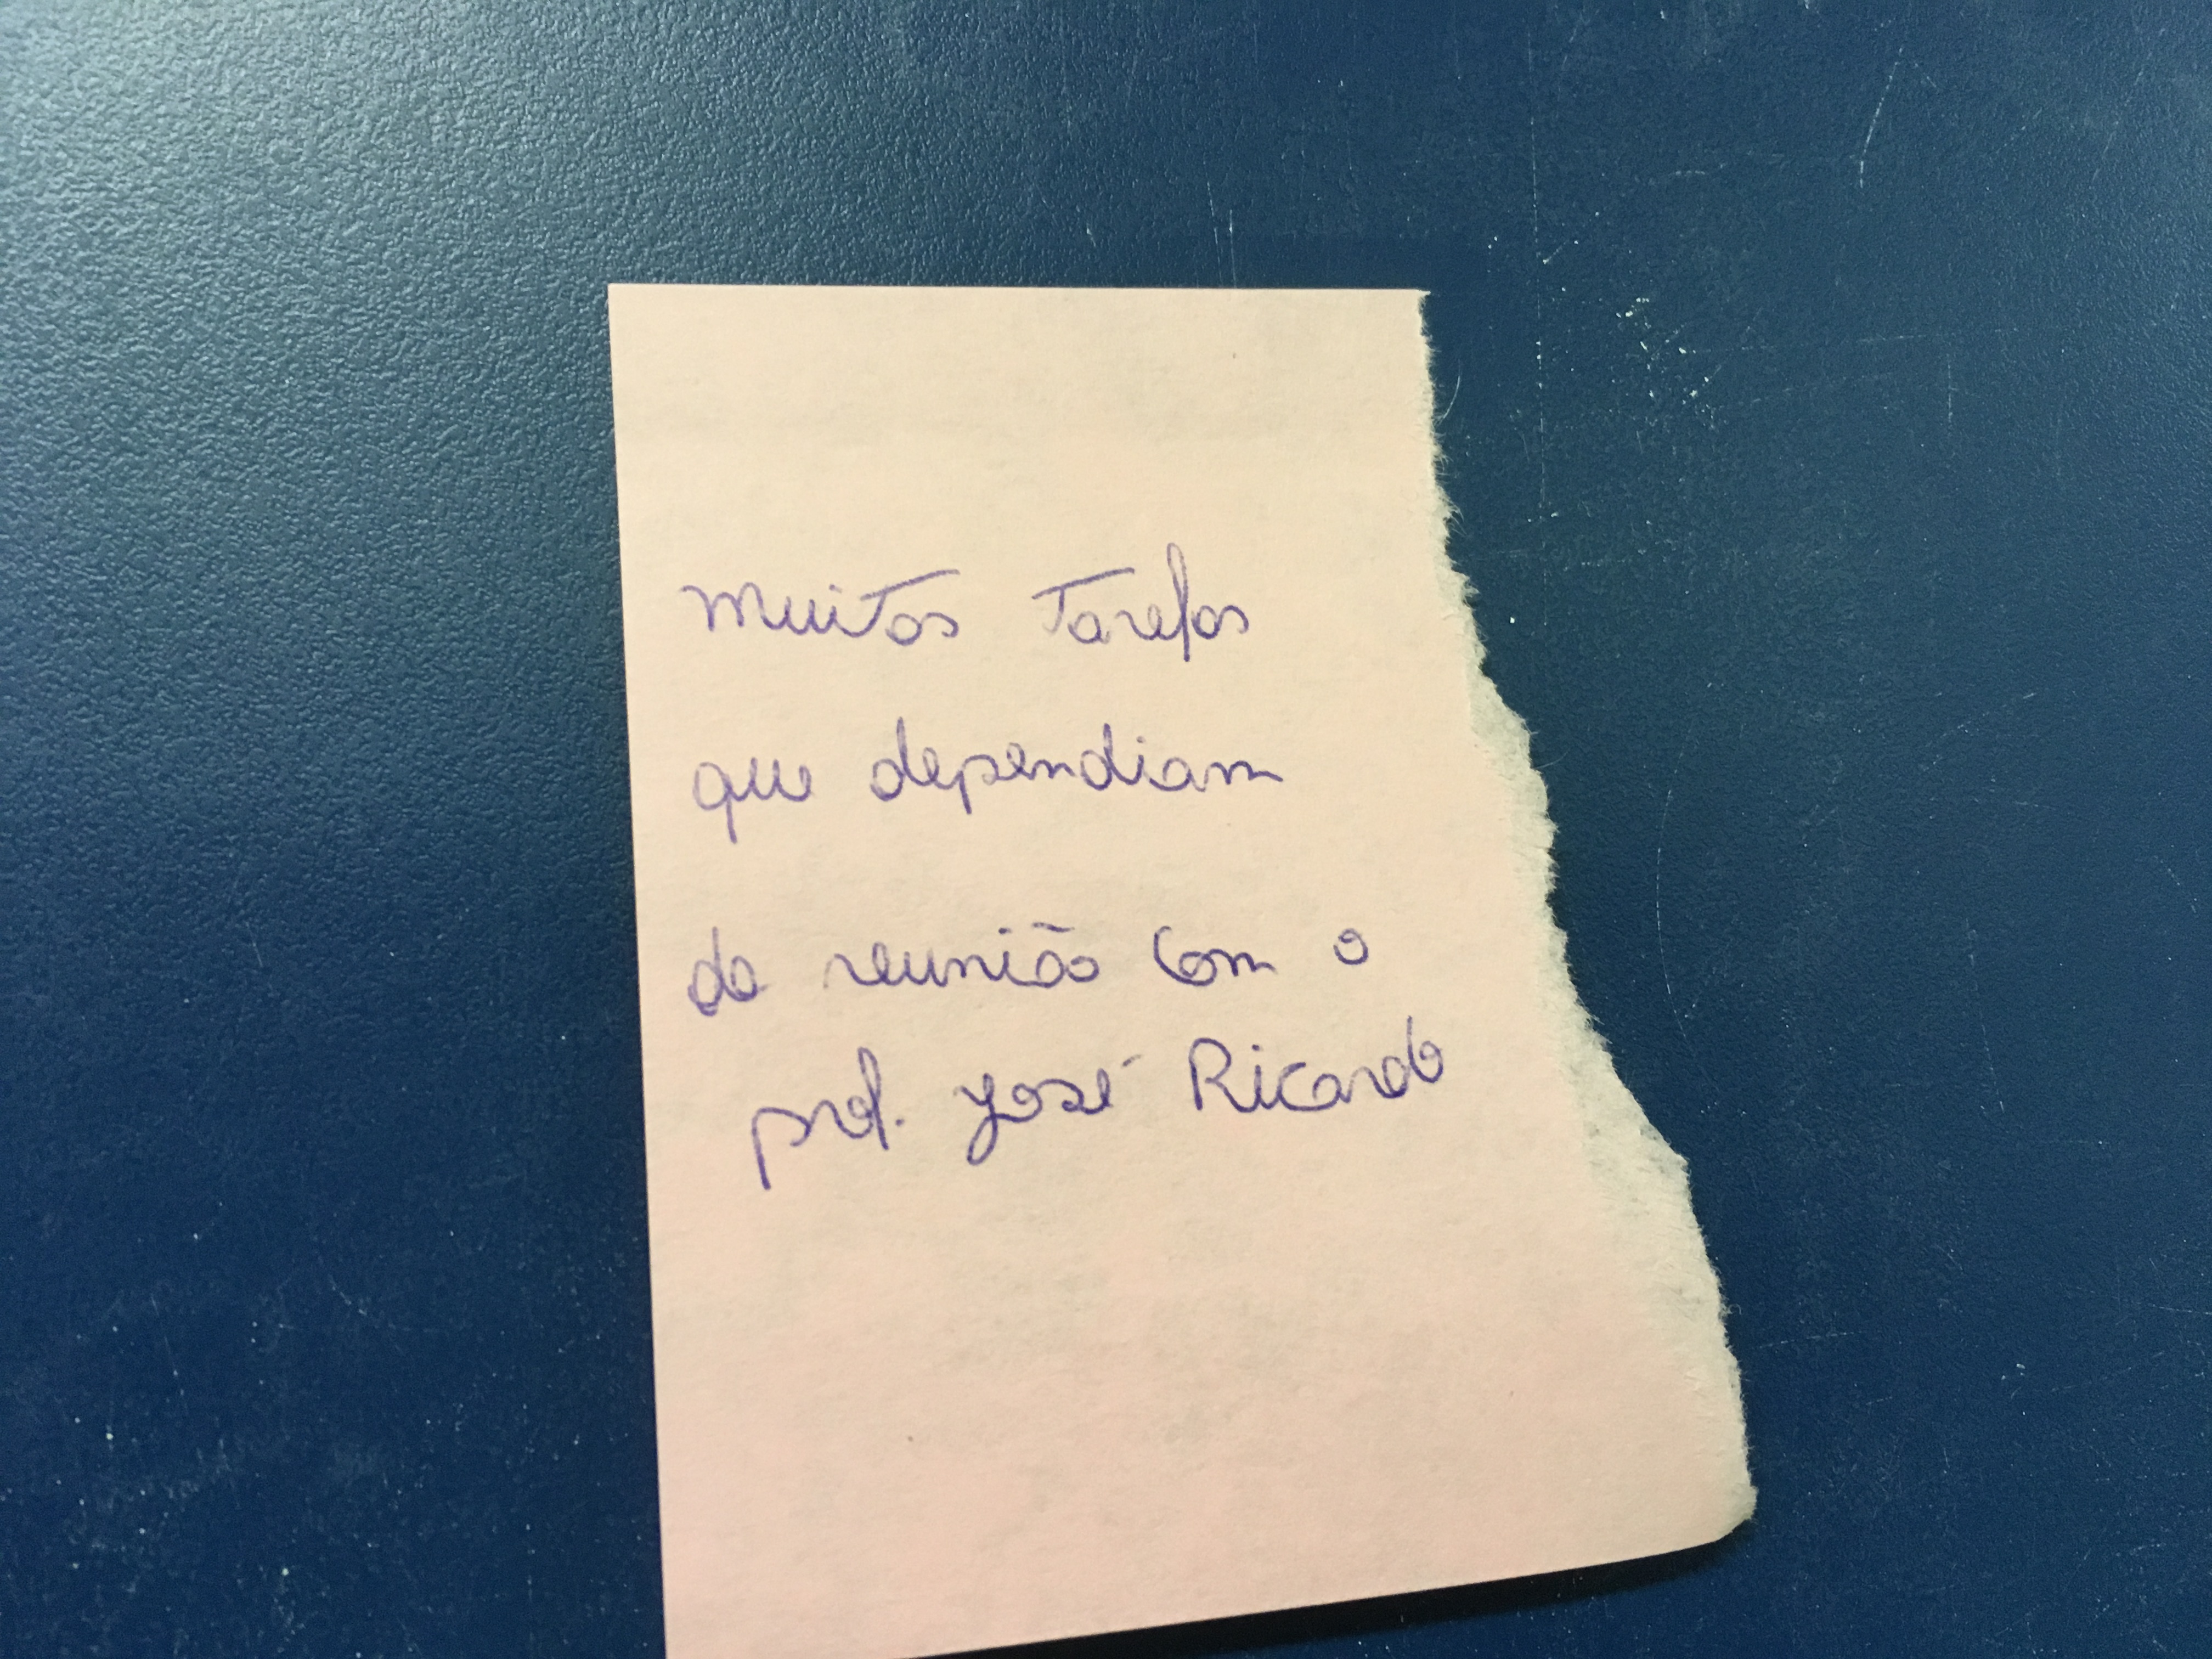 muitas tarefas
que dependiam
da reunião com o
prof. José Ricardo